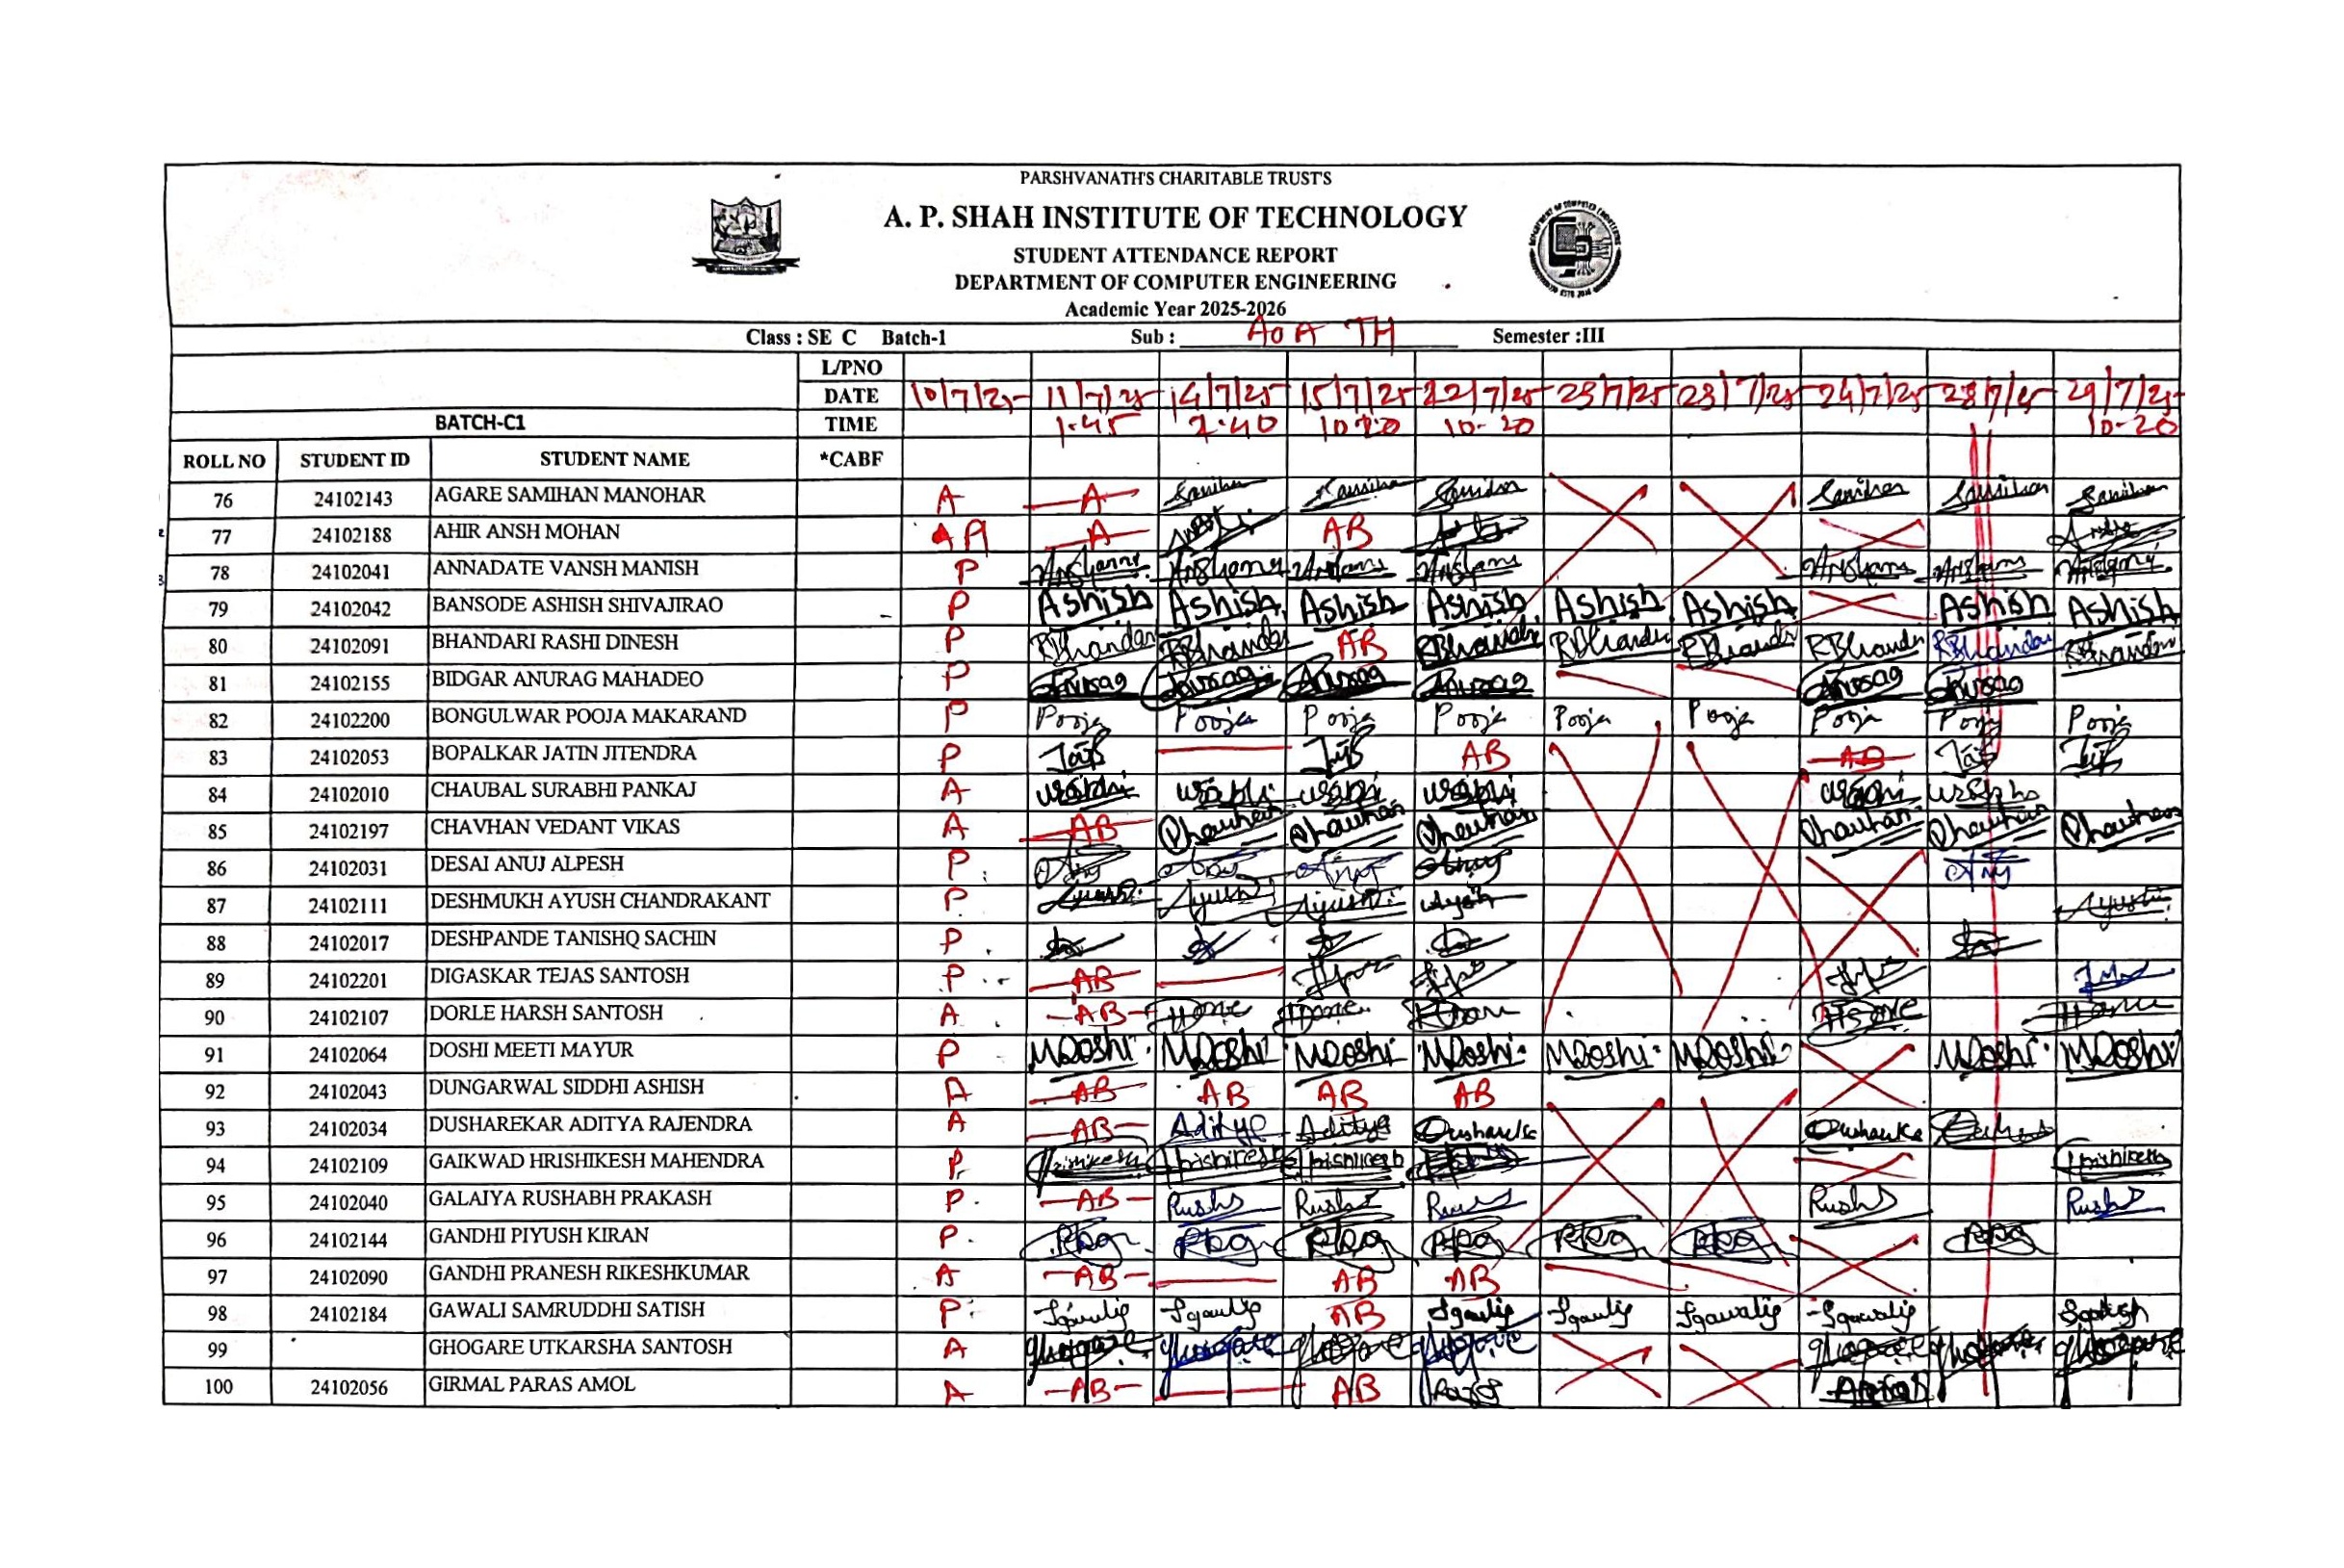 PARSHVANATH'S CHARITABLE TRUST'S
A. P. SHAH INSTITUTE OF TECHNOLOGY
STUDENT ATTENDANCE REPORT
DEPARTMENT OF COMPUTER ENGINEERING
Academic Year 2025-2026
Class : SE C Batch-1 Sub : AOA TH Semester :III
L/PNO
DATE 10/7/25 11/7/25 14/7/25 15/7/25 22/7/25 23/7/25 23/7/25 24/7/25 28/7/25 29/7/25
BATCH-C1 TIME 1.45 2.40 10.20 10-20 10-20
ROLL NO STUDENT ID STUDENT NAME *CABF
76 24102143 AGARE SAMIHAN MANOHAR A A
77 24102188 AHIR ANSH MOHAN A A AB
78 24102041 ANNADATE VANSH MANISH P
79 24102042 BANSODE ASHISH SHIVAJIRAO P Ashish Ashish Ashish Ashish Ashish Ashish Ashish Ashish
80 24102091 BHANDARI RASHI DINESH P RBhandari RBhandari AB RBhandari RBhandari RBhandari RBhandari RBhandari RBhandari
81 24102155 BIDGAR ANURAG MAHADEO P Anurag Anurag Anurag Anurag Anurag Anurag
82 24102200 BONGULWAR POOJA MAKARAND P Pooja Pooja Pooja Pooja Pooja Pooja Pooja Pooja Pooja
83 24102053 BOPALKAR JATIN JITENDRA P AB AB
84 24102010 CHAUBAL SURABHI PANKAJ A
85 24102197 CHAVHAN VEDANT VIKAS A AB
86 24102031 DESAI ANUJ ALPESH P
87 24102111 DESHMUKH AYUSH CHANDRAKANT P Ayush Ayush Ayush Ayush Ayush
88 24102017 DESHPANDE TANISHQ SACHIN P
89 24102201 DIGASKAR TEJAS SANTOSH P AB
90 24102107 DORLE HARSH SANTOSH A AB
91 24102064 DOSHI MEETI MAYUR P MDoshi MDoshi MDoshi MDoshi MDoshi MDoshi MDoshi MDoshi
92 24102043 DUNGARWAL SIDDHI ASHISH A AB AB AB AB
93 24102034 DUSHAREKAR ADITYA RAJENDRA A AB Aditya Aditya
94 24102109 GAIKWAD HRISHIKESH MAHENDRA P Hrishikesh Hrishikesh Hrishikesh Hrishikesh
95 24102040 GALAIYA RUSHABH PRAKASH P AB
96 24102144 GANDHI PIYUSH KIRAN P
97 24102090 GANDHI PRANESH RIKESHKUMAR A AB AB AB
98 24102184 GAWALI SAMRUDDHI SATISH P AB
99 GHOGARE UTKARSHA SANTOSH A
100 24102056 GIRMAL PARAS AMOL A AB AB